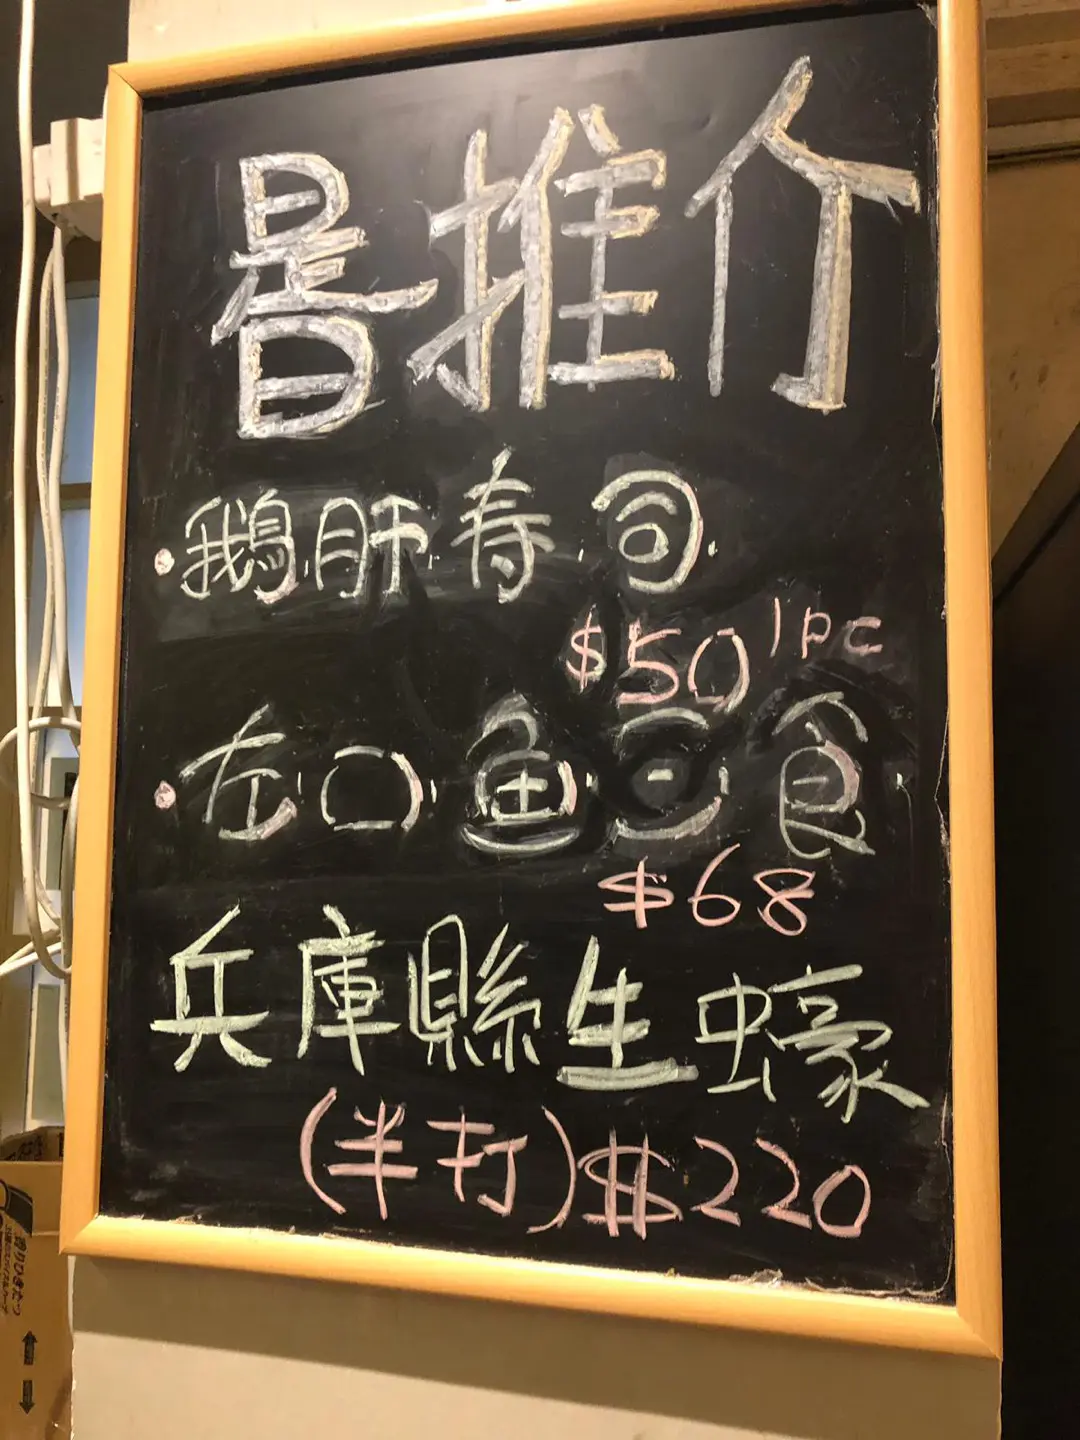 是日推介
·鵝肝寿司
$50 1pc
·左口魚食
$68
兵庫縣生蠔
(半打)$220